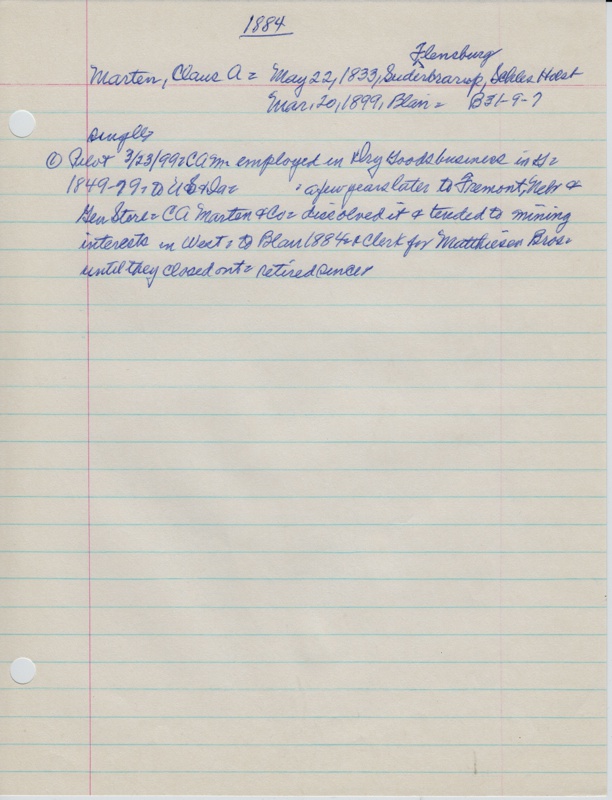 1884
Flensburg
Marten, Claus A = May 22, 1833, Suderbrarup, Schles Holst
Mar. 20, 1899, Blair = B31-9-7
single
① Pilot 3/23/99 = CA m employed in Dry Goods business in G =
1849-79 = to US & Ia = = a few years later to Fremont, Nebr &
Gen Store = CA Marten & Co = disolved it & tended to mining
interests in West = to Blair 1884 = & Clerk for Matthiesen Bros =
until they closed out = retired since